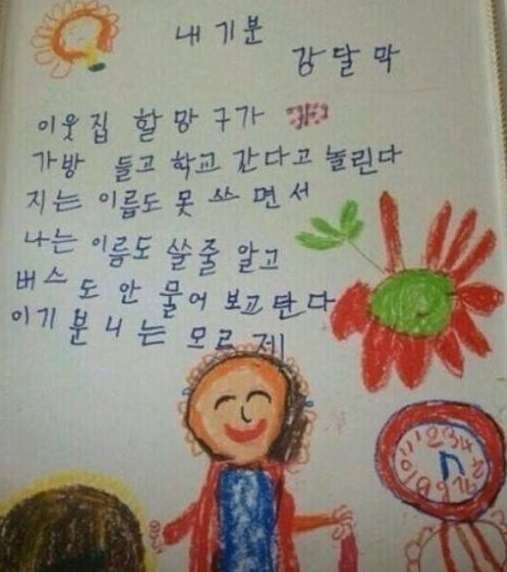 내 기분
강달막
이웃집 할망구가
가방 들고 학교 간다고 놀린다
지는 이름도 못 쓰면서
나는 이름도 쓸줄 알고
버스도 안 물어보고 탄다
이기분 니는 모르제
12 1 2 3 4 5 6 7 8 9 10 11